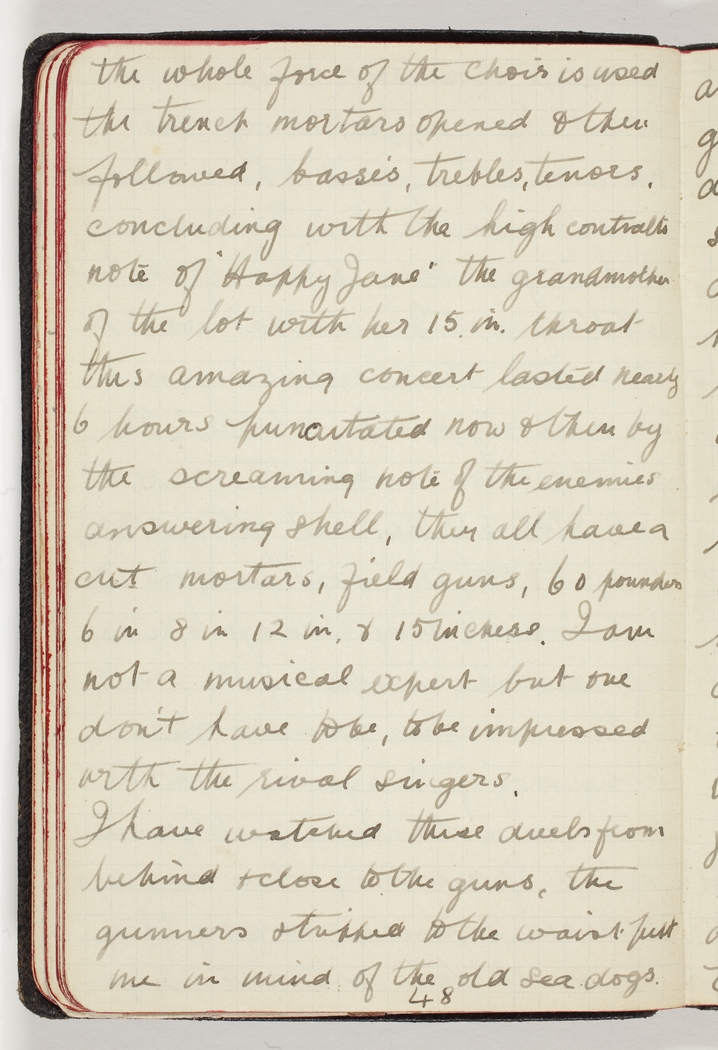 the whole force of the choir is used
the trench mortars opened & then
followed, basses, trebles, tenors,
concluding with the high contralto
note of 'Happy Jane' the grandmother
of the lot with her 15 in. throat
this amazing concert lasted nearly
6 hours puncutated now & then by
the screaming note of the enemies
answering shell, they all have a
cut mortars, field guns, 60 pounders
6 in 8 in 12 in. & 15 inchess. I am
not a musical expert but one
don't have to be, to be impressed
with the rival singers.
I have watched these duels from
behind & close to the guns, the
gunners stripped to the waist put
me in mind of the old sea dogs.
48